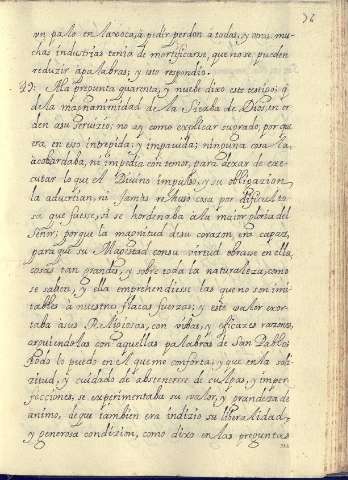 un palo en la boca, à pidir perdon à todas, y otras mu-
chas industrias tenia de mortificarse, que no se pueden
reduzir à palabras; y esto respondio.
49: A la pregunta quarenta, y nuebe dixo este testigo: q̃
de la magnanimidad de la Sierba de Dios, en or
den a su servizio; no ay como explicar su grado, por que
era en esso intrepida, y impavida; ninguna cosa la,
acobardaba, ni impedia con temor, para dexar de exe-
cutar lo que el Divino impulso, y su obligazion
la advertian, ni jamas rehuso cosa por dificulto
sa que fuesse, si se hordenaba à la maior gloria del
Señor; porque la magnitud de su corazon, era capaz,
para que su Magestad con su virtud obrase en ella,
cosas tan grandes, y sobre toda la naturaleza, como
se saben, y ella emprehendiesse las que no son imi
tables à nuestras flacas fuerzas; y este valor exor
taba a sus Religiosas, con vibas, y eficazes razones,
arguiendolas con aquellas palabras de San Pablo:
todo lo puedo en el que me conforta; y que en la soli
zitud, y cuidado de abstenerse de culpas, y imper
fecciones, se experimentaba su valor, y grandeza de
animo, de que tambien era indizio su liberalidad,
y generosa condizion, como dixo en las preguntas